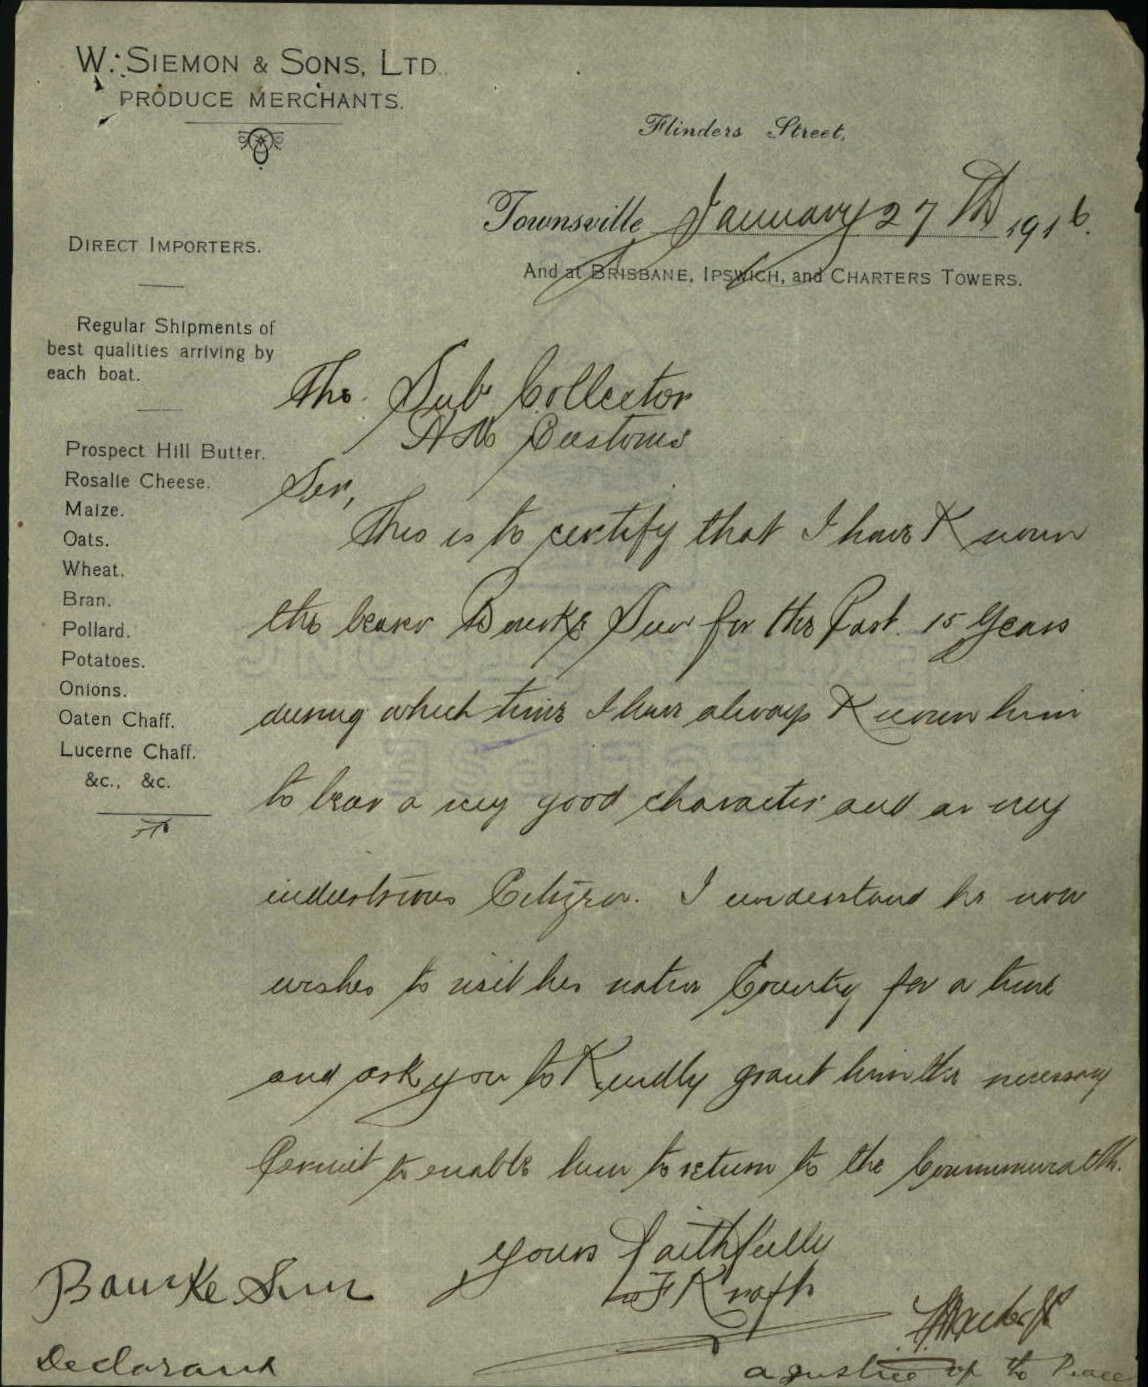 W. SIEMON & SONS, LTD.
PRODUCE MERCHANTS.
Flinders Street,
Townsville January 27th 1916.
And at BRISBANE, IPSWICH, and CHARTERS TOWERS.
DIRECT IMPORTERS.
Regular Shipments of
best qualities arriving by
each boat.
Prospect Hill Butter.
Rosalie Cheese.
Maize.
Oats.
Wheat.
Bran.
Pollard.
Potatoes.
Onions.
Oaten Chaff.
Lucerne Chaff.
&c., &c.
The Sub Collector
HM Customs
Sir,
This is to certify that I have Known
the bearer Bourke Sun for the Past 15 Years
during which time I have always Known him
to bear a very good character and a very
industrious Citizen. I understand he now
wishes to visit his native Country for a time
and ask you to Kindly grant him the necessary
Permit to enable him to return to the Commonwealth.
yours faithfully
Knapp
Bourke Sun
Declarant
a Justice of the Peace